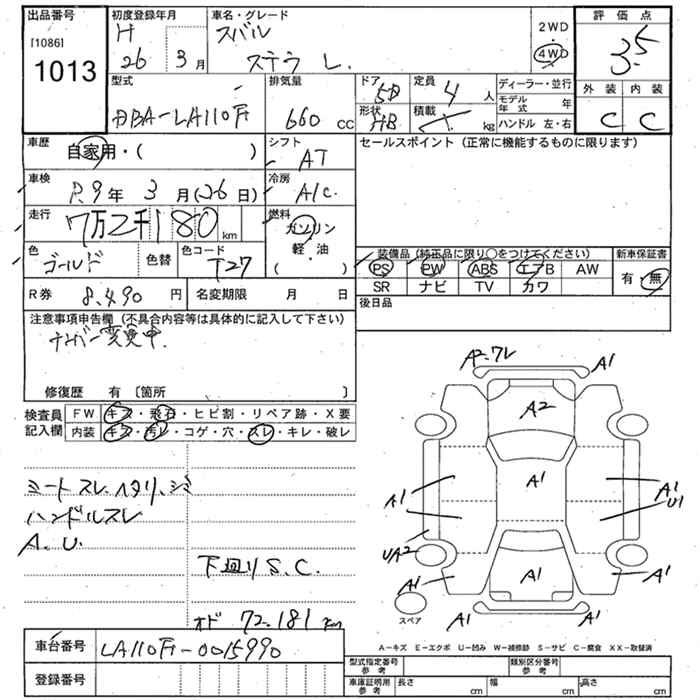 出品番号 初度登録年月 車名・グレード 2WD 評価点
[1086] H スバル 4WD 3.5
1013 26 3月 ステラ L.
外装 内装
型式 排気量 ドア 5D 定員 4人 ディーラー・並行
モデル年式 年
DBA-LA110F 660 cc 形状 HB 積載 kg ハンドル 左・右 C C
車歴 自家用・( ) シフト AT セールスポイント (正常に機能するものに限ります)
車検 R.9年 3月(26日) 冷房 A/C.
走行 7万2千180 km 燃料 ガソリン
軽・油
( )
色 ゴールド 色替 色コード T27
装備品 (純正品に限り○をつけてください) 新車保証書
PS PW ABS エアB AW 有・無
SR ナビ TV カワ
R券 8.490 円 名変期限 月 日 後日品
注意事項申告欄 (不具合内容等は具体的に記入して下さい)
ナンバー変更中.
修復歴 有 [箇所 ]
検査員 FW キズ・飛石・ヒビ割・リペア跡・X要
記入欄 内装 キズ・汚レ・コゲ・穴・スレ・キレ・破レ
A2.ワレ A1
A2
A1
A1 A1
U1
UA2
A1 A1 A1
A1 A1
スペア
シートスレ.ヘタリ.シミ
ハンドルスレ
A.U.
下廻りS.C.
オド 72.181 km
A-キズ E-エクボ U-凹み W-補修跡 S-サビ C-腐食 XX-取替済
車台番号 LA110F-0015990
登録番号
型式指定番号 参考 類別区分番号 参考
車庫証明用 参考 長さ cm 幅 cm 高さ cm